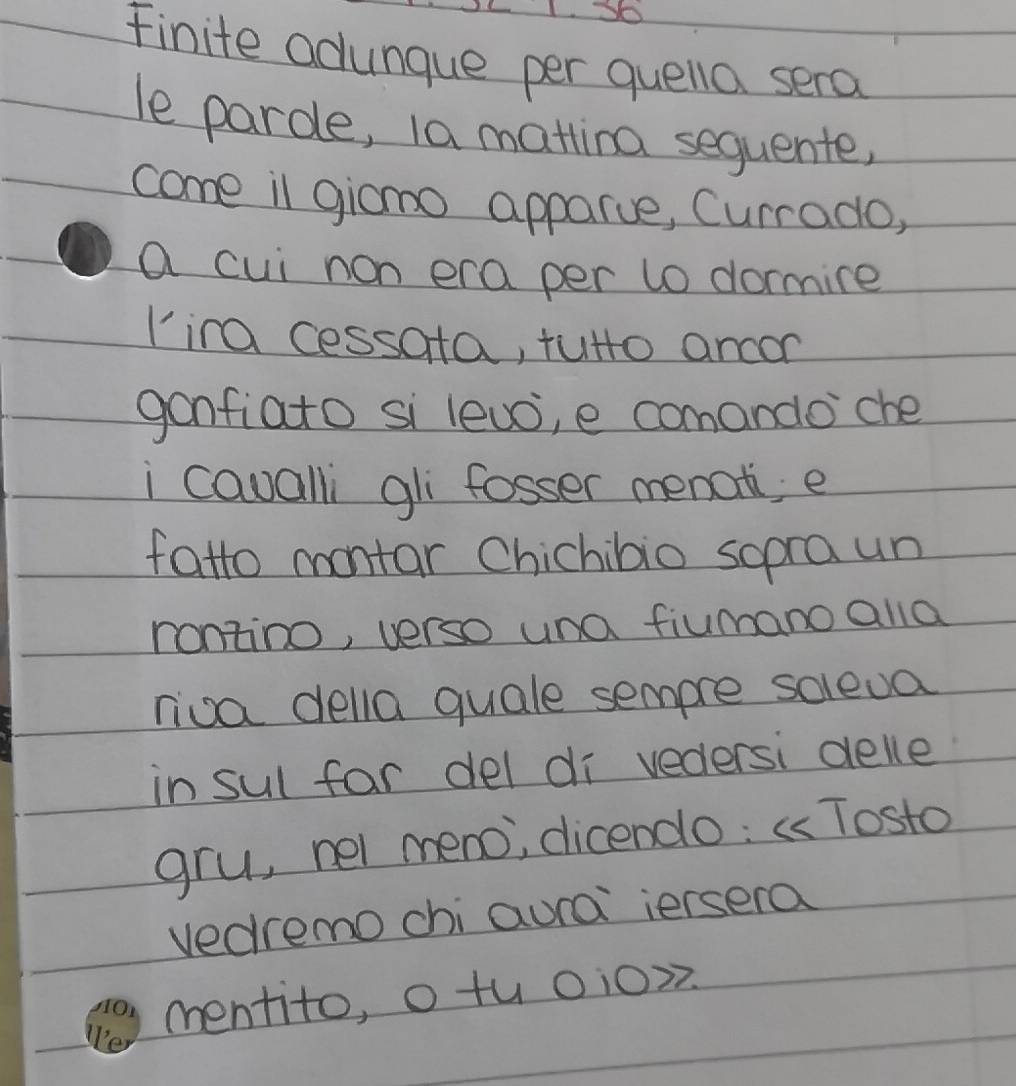 Finite adunque per quella sera
le parole, la mattina seguente,
come il giorno apparve, Currado,
a cui non era per lo dormire
l'ira cessata, tutto ancor
gonfiato si levò, e comandò che
i cavalli gli fosser menati; e
fatto montar Chichibio sopra un
ronzino, verso una fiumano alla
riva della quale sempre soleva
in sul far del dì vedersi delle
gru, nel menò, dicendo: «Tosto
vedremo chi avrà iersera
mentito, o tu o io».